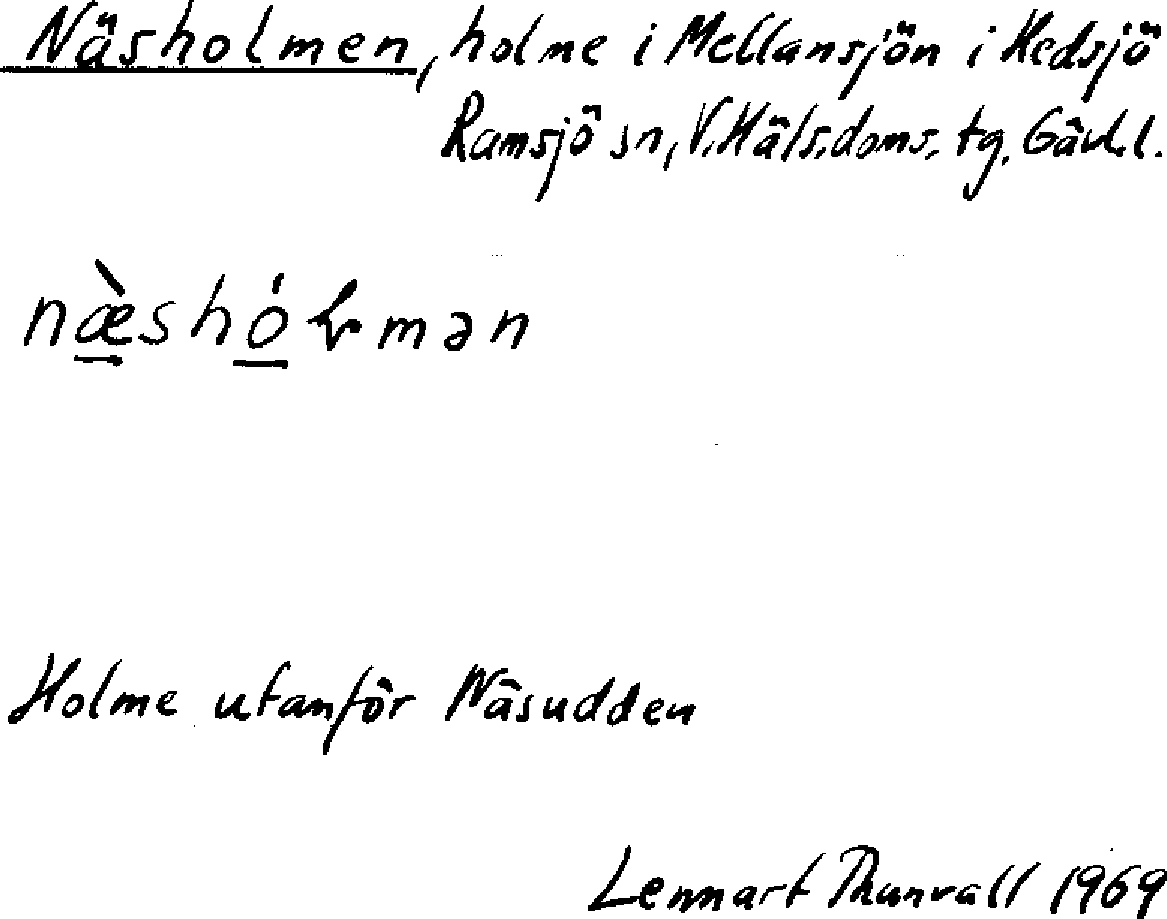 Näsholmen, holme i Mellansjön i Hedsjö
Ramsjö sn, V. Häls. doms. tg, Gävl. l.
Holme utanför Näsudden
Lennart Thunvall 1969